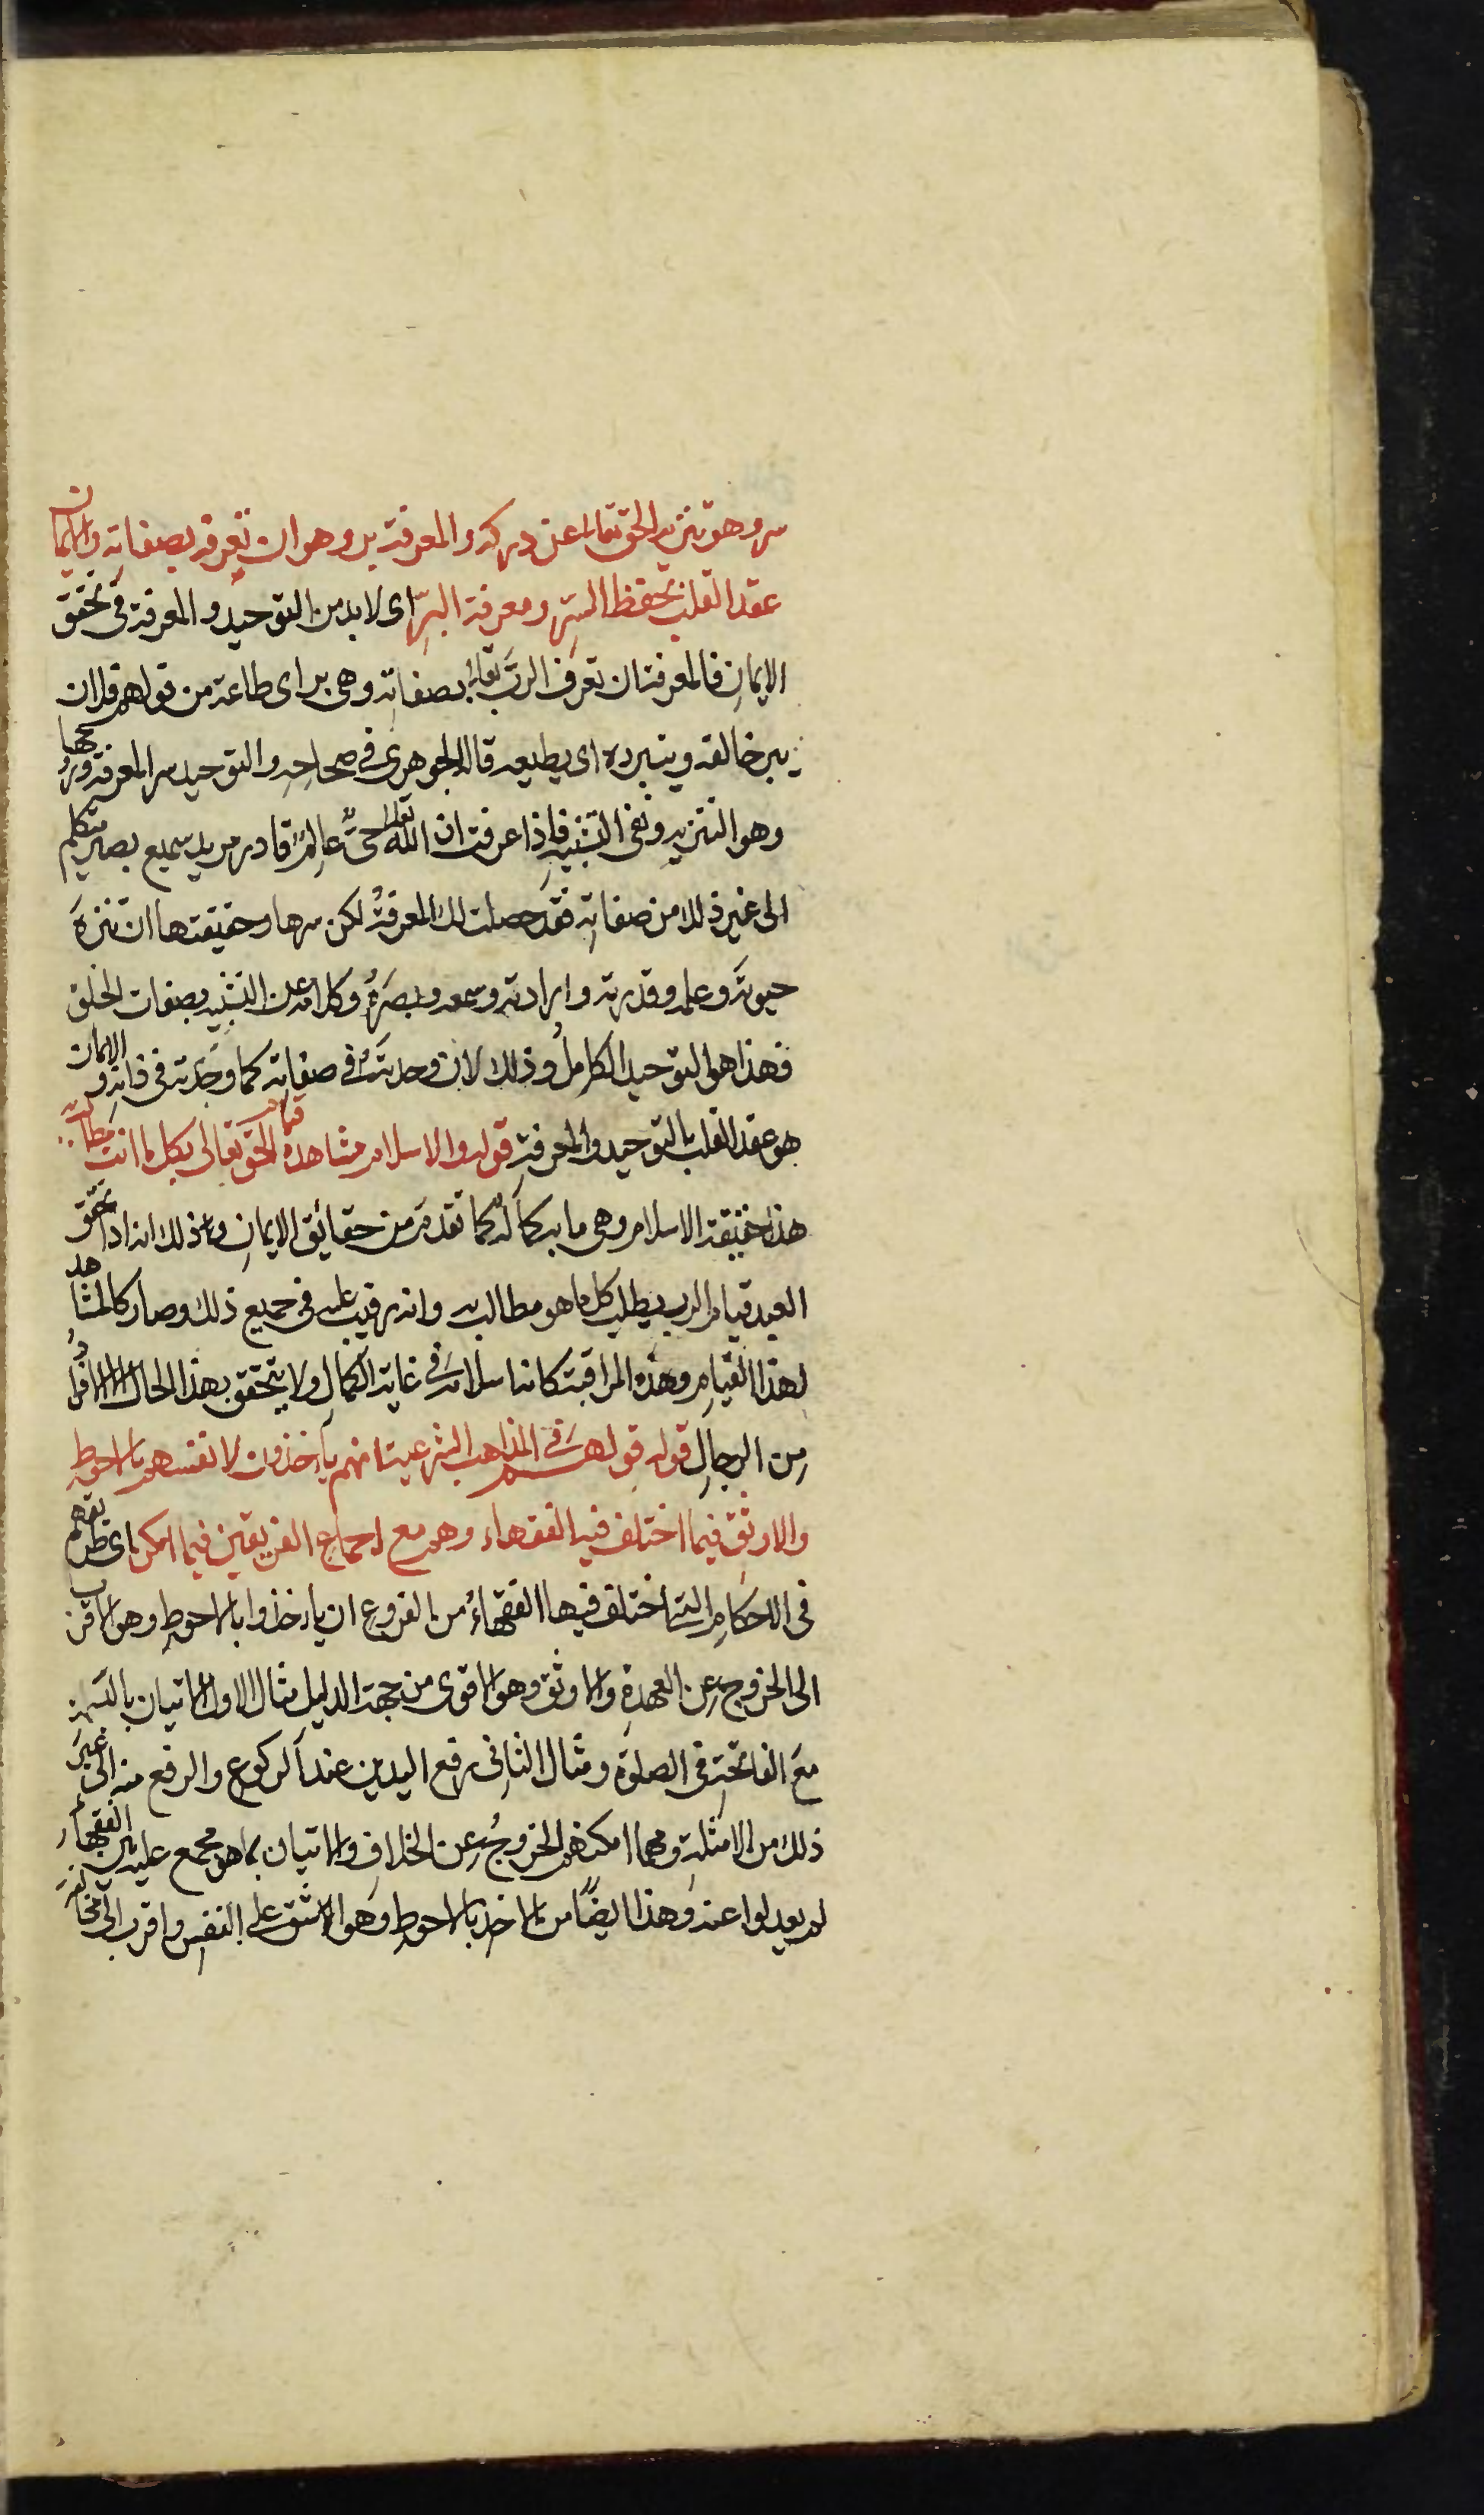 سر وهو تنزيه الحق تعالى عن دركه والمعرفة بر وهو ان تعرفه بصفاته والايمان
عقد القلب بحفظ السر ومعرفة البر اى لابد من التوحيد والمعرفة فى تحقق
الايمان فالمعرفة ان تعرف الرب تعالى بصفاته وهى بر اى طاعة من قولهم فلان
يبر خالقه ويتبرره اى يطيعه قاله الجوهرى فى صحاحه والتوحيد سر المعرفة وروحها
وهو التنزيه ونفى التشبيه فاذا عرفت ان الله تعالى حىٌّ عالمٌ قادر مريد سميع بصير متكلم
الى غير ذلك من صفاته فقد حصلت لك المعرفة لكن سرها وحقيقتها ان تنزه
حيوته وعلمه وقدرته وارادته وسمعه وبصره وكلامه عن التشبيه بصفات الخلق
فهذا هو التوحيد الكامل وذلك لان وحدته فى صفاته كما وحدته فى ذاته والايمان
هو عقد القلب بالتوحيد والمعرفة قوله والاسلام مشاهدة قيام الحق تعالى بكل ما انت مطالب به
هذا حقيقة الاسلام وهى ما به كماله كما تقدم من حقائق الايمان وذلك انه اذا تحقق
العبد قيام الرب بطلب كل ما هو مطالب به وانه رقيب عليه فى جميع ذلك وصار كالمشاهد
لهذا القيام وهذه المراقبة كان اسلامه فى غاية الكمال ولا يتحقق بهذا الحال الا الافراد
من الرجال قوله قولهم فى المذاهب الشرعية انهم يأخذون لانفسهم بالاحوط
والاوثق فيما اختلف فيه الفقهاء وهو مع اجماع الفريقين فيما امكن اى طريقهم
فى الاحكام التى اختلف فيها الفقهاءُ من الفروع ان يأخذوا بالاحوط وهو الاقرب
الى الخروج عن العهدة والاوثق وهو الاقوى من جهة الدليل مثال الاول الاتيان بالتسمية
مع الفاتحة فى الصلوة ومثال الثانى رفع اليدين عند الركوع والرفع منه الى غير
ذلك من الامثلة ومهما امكنهم الخروجُ عن الخلاف والاتيان بما هو مجمع عليه بين الفقهاء
لم يعدلوا عنه وهذا ايضًا من الاخذ بالاحوط وهو الاشق على النفس واقرب الى مخالفة